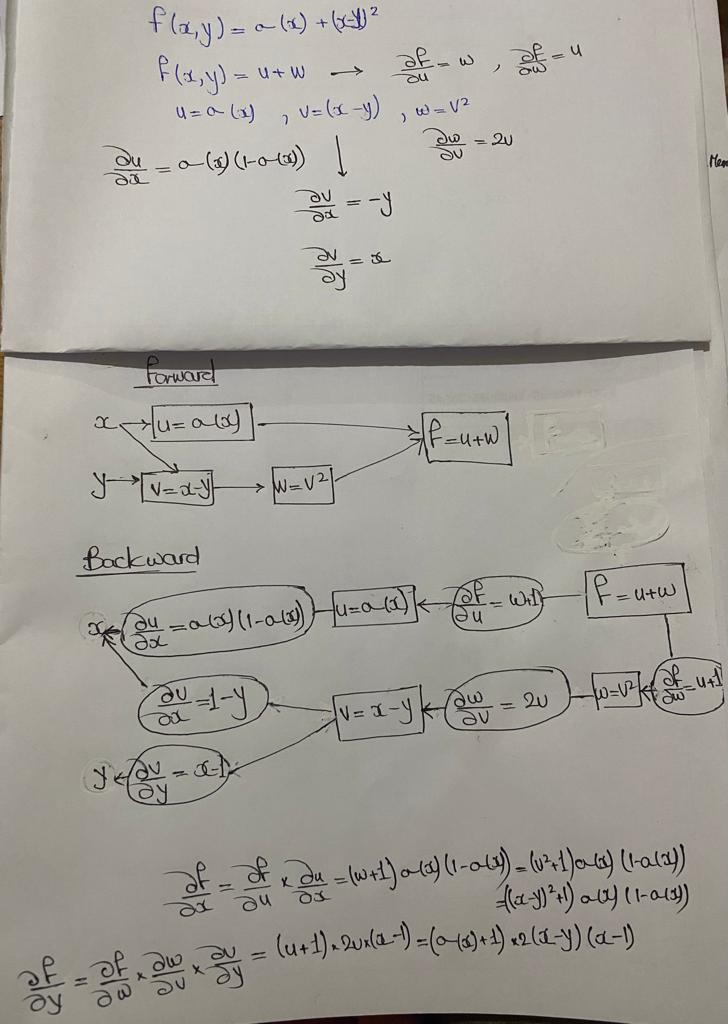 f(x,y) = σ(x) + (x-y)²
f(x,y) = u + w → ∂f/∂u = w , ∂f/∂w = u
u = σ(x) , v = (x-y) , w = v²
∂w/∂v = 2v
∂u/∂x = σ(x)(1-σ(x))
∂v/∂x = -y
∂v/∂y = x
Forward
x → u = σ(x) → f = u+w
y → v = x-y → w = v²
Backward
x ← ∂u/∂x = σ(x)(1-σ(x)) u = σ(x) ← ∂f/∂u = w+1 f = u+w
∂v/∂x = 1-y v = x-y ← ∂w/∂v = 2v w = v² ← ∂f/∂w = u+1
y ← ∂v/∂y = x-1
∂f/∂x = ∂f/∂u × ∂u/∂x = (w+1) σ(x) (1-σ(x)) = (v²+1) σ(x) (1-σ(x))
= ((x-y)²+1) σ(x) (1-σ(x))
∂f/∂y = ∂f/∂w × ∂w/∂v × ∂v/∂y = (u+1) × 2v × (x-1) = (σ(x)+1) × 2(x-y) (x-1)